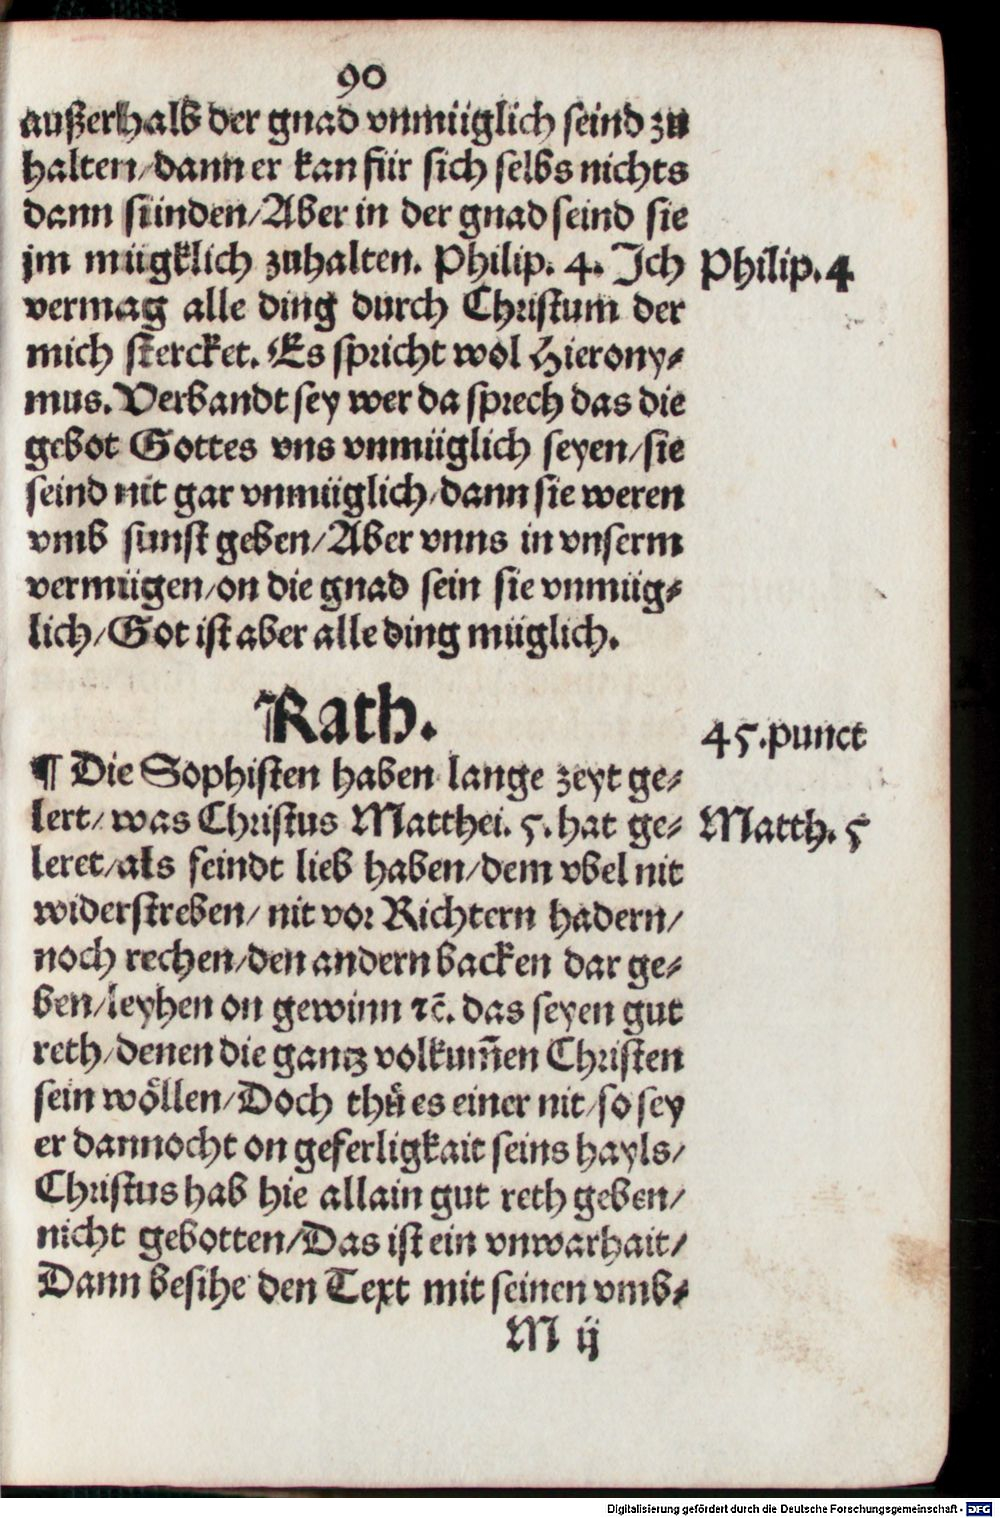 90
außerhalb der gnad vnmüglich seind zu
halten/dann er kan für sich selbs nichts
dann sünden/Aber in der gnad seind sie
jm mügklich zuhalten. Philip. 4. Ich
Philip. 4
vermag alle ding durch Christum der
mich stercket. Es spricht wol Hierony⸗
mus. Verbandt sey wer da sprech das die
gebot Gottes vns vnmüglich seyen/sie
seind nit gar vnmüglich/dann sie weren
vmb sunst geben/Aber vnns in vnserm
vermügen/on die gnad sein sie vnmüg⸗
lich/Got ist aber alle ding müglich.
Rath.
45. punct
¶ Die Sophisten haben lange zeyt ge⸗
lert/was Christus Matthei. 5. hat ge⸗
Matth. 5
leret/als feindt lieb haben/dem vbel nit
widerstreben/ nit vor Richtern hadern/
noch rechen/den andern backen dar ge⸗
ben/leyhen on gewinn ⁊c̄. das seyen gut
reth/denen die gantz volkum̄en Christen
sein wöllen/Doch thů es einer nit/so sey
er dannocht on geferligkait seins hayls/
Christus hab hie allain gut reth geben/
nicht gebotten/Das ist ein vnwarhait/
Dann besihe den Text mit seinen vmb⸗
M ij
Digitalisierung gefördert durch die Deutsche Forschungsgemeinschaft - DFG